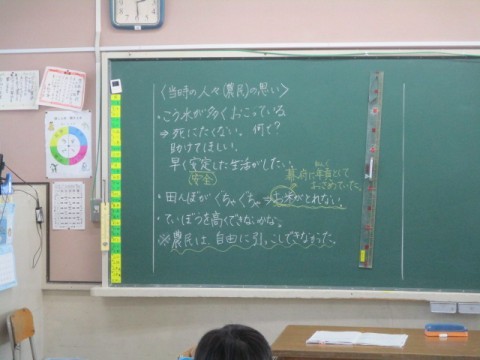 〈当時の人々(農民)の思い〉
・こう水が多くおこっている
⇒死にたくない。何で?
助けてほしい。
早く安定した生活がしたい。
安全
幕府に年貢として
おさめていた。
・田んぼがぐちゃぐちゃ→お米がとれない。
・ていぼうを高くできないかな。
※農民は、自由に引っこしできなかった。